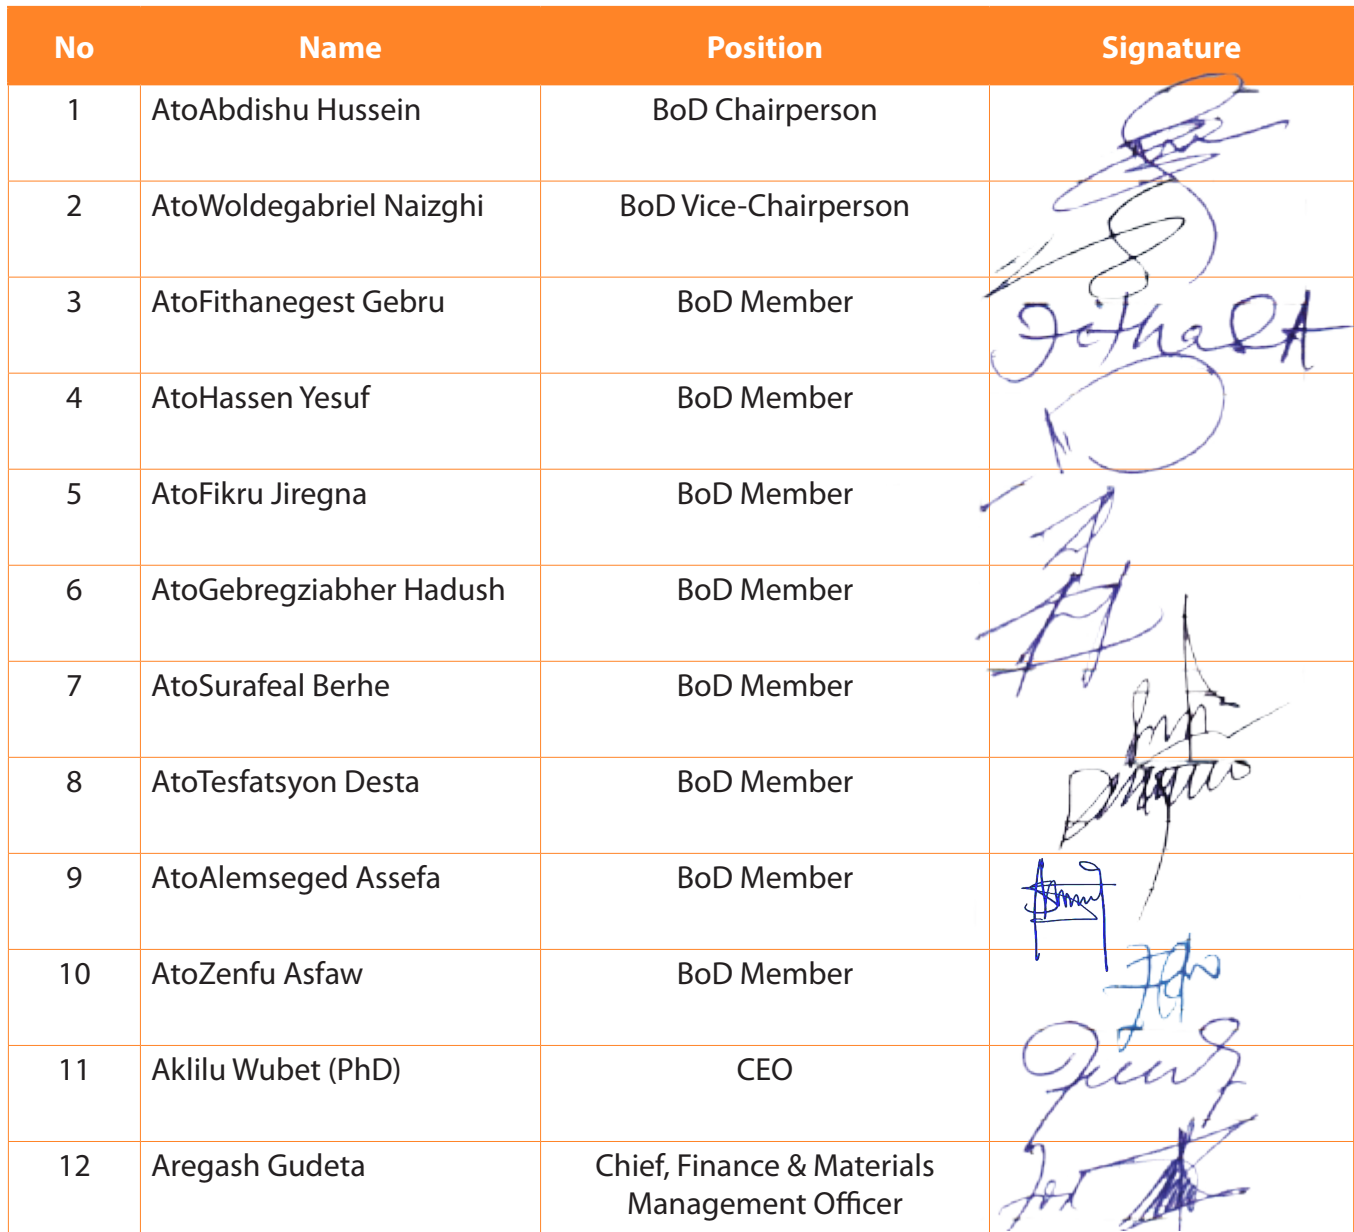 No Name Position Signature
1 AtoAbdishu Hussein BoD Chairperson
2 AtoWoldegabriel Naizghi BoD Vice-Chairperson
3 AtoFithanegest Gebru BoD Member
4 AtoHassen Yesuf BoD Member
5 AtoFikru Jiregna BoD Member
6 AtoGebregziabher Hadush BoD Member
7 AtoSurafeal Berhe BoD Member
8 AtoTesfatsyon Desta BoD Member
9 AtoAlemseged Assefa BoD Member
10 AtoZenfu Asfaw BoD Member
11 Aklilu Wubet (PhD) CEO
12 Aregash Gudeta Chief, Finance & Materials
Management Officer